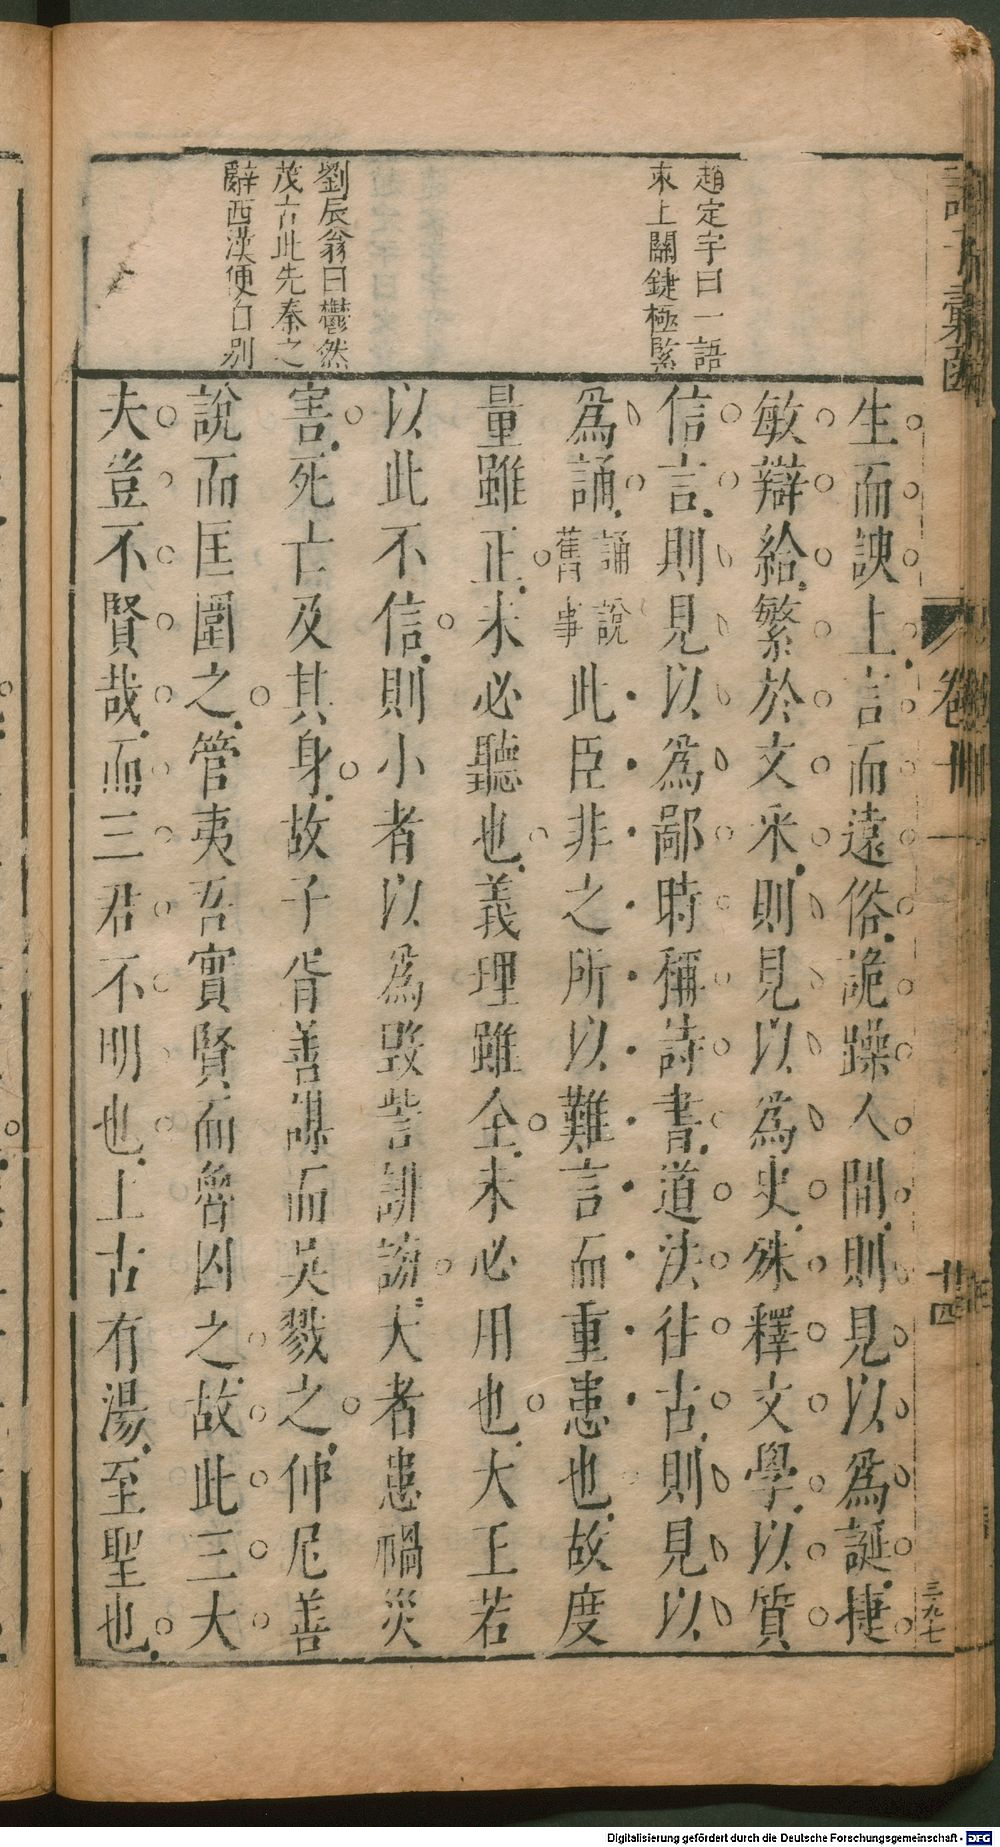 趙定宇曰一語
束上關鍵極緊
劉辰翁曰欝然
茂古此先秦之
辭西漢便自别
生而諛上言而遠俗詭躁人間則見以爲誕捷
敏辯給繁於文采則見以爲史殊釋文學以質
信言則見以爲鄙時稱詩書道法往古則見以
爲誦誦說舊事此臣非之所以難言而重患也故度
量雖正未必聽也義理雖全未必用也大王若
以此不信則小者以爲毀訾誹謗大者患禍災
害死亡及其身故子胥善謀而吳戮之仲尼善
說而匡圍之管夷吾實賢而魯囚之故此三大
夫豈不賢哉而三君不明也上古有湯至聖也
卷
廿四
三九七
Digitalisierung gefördert durch die Deutsche Forschungsgemeinschaft - DFG